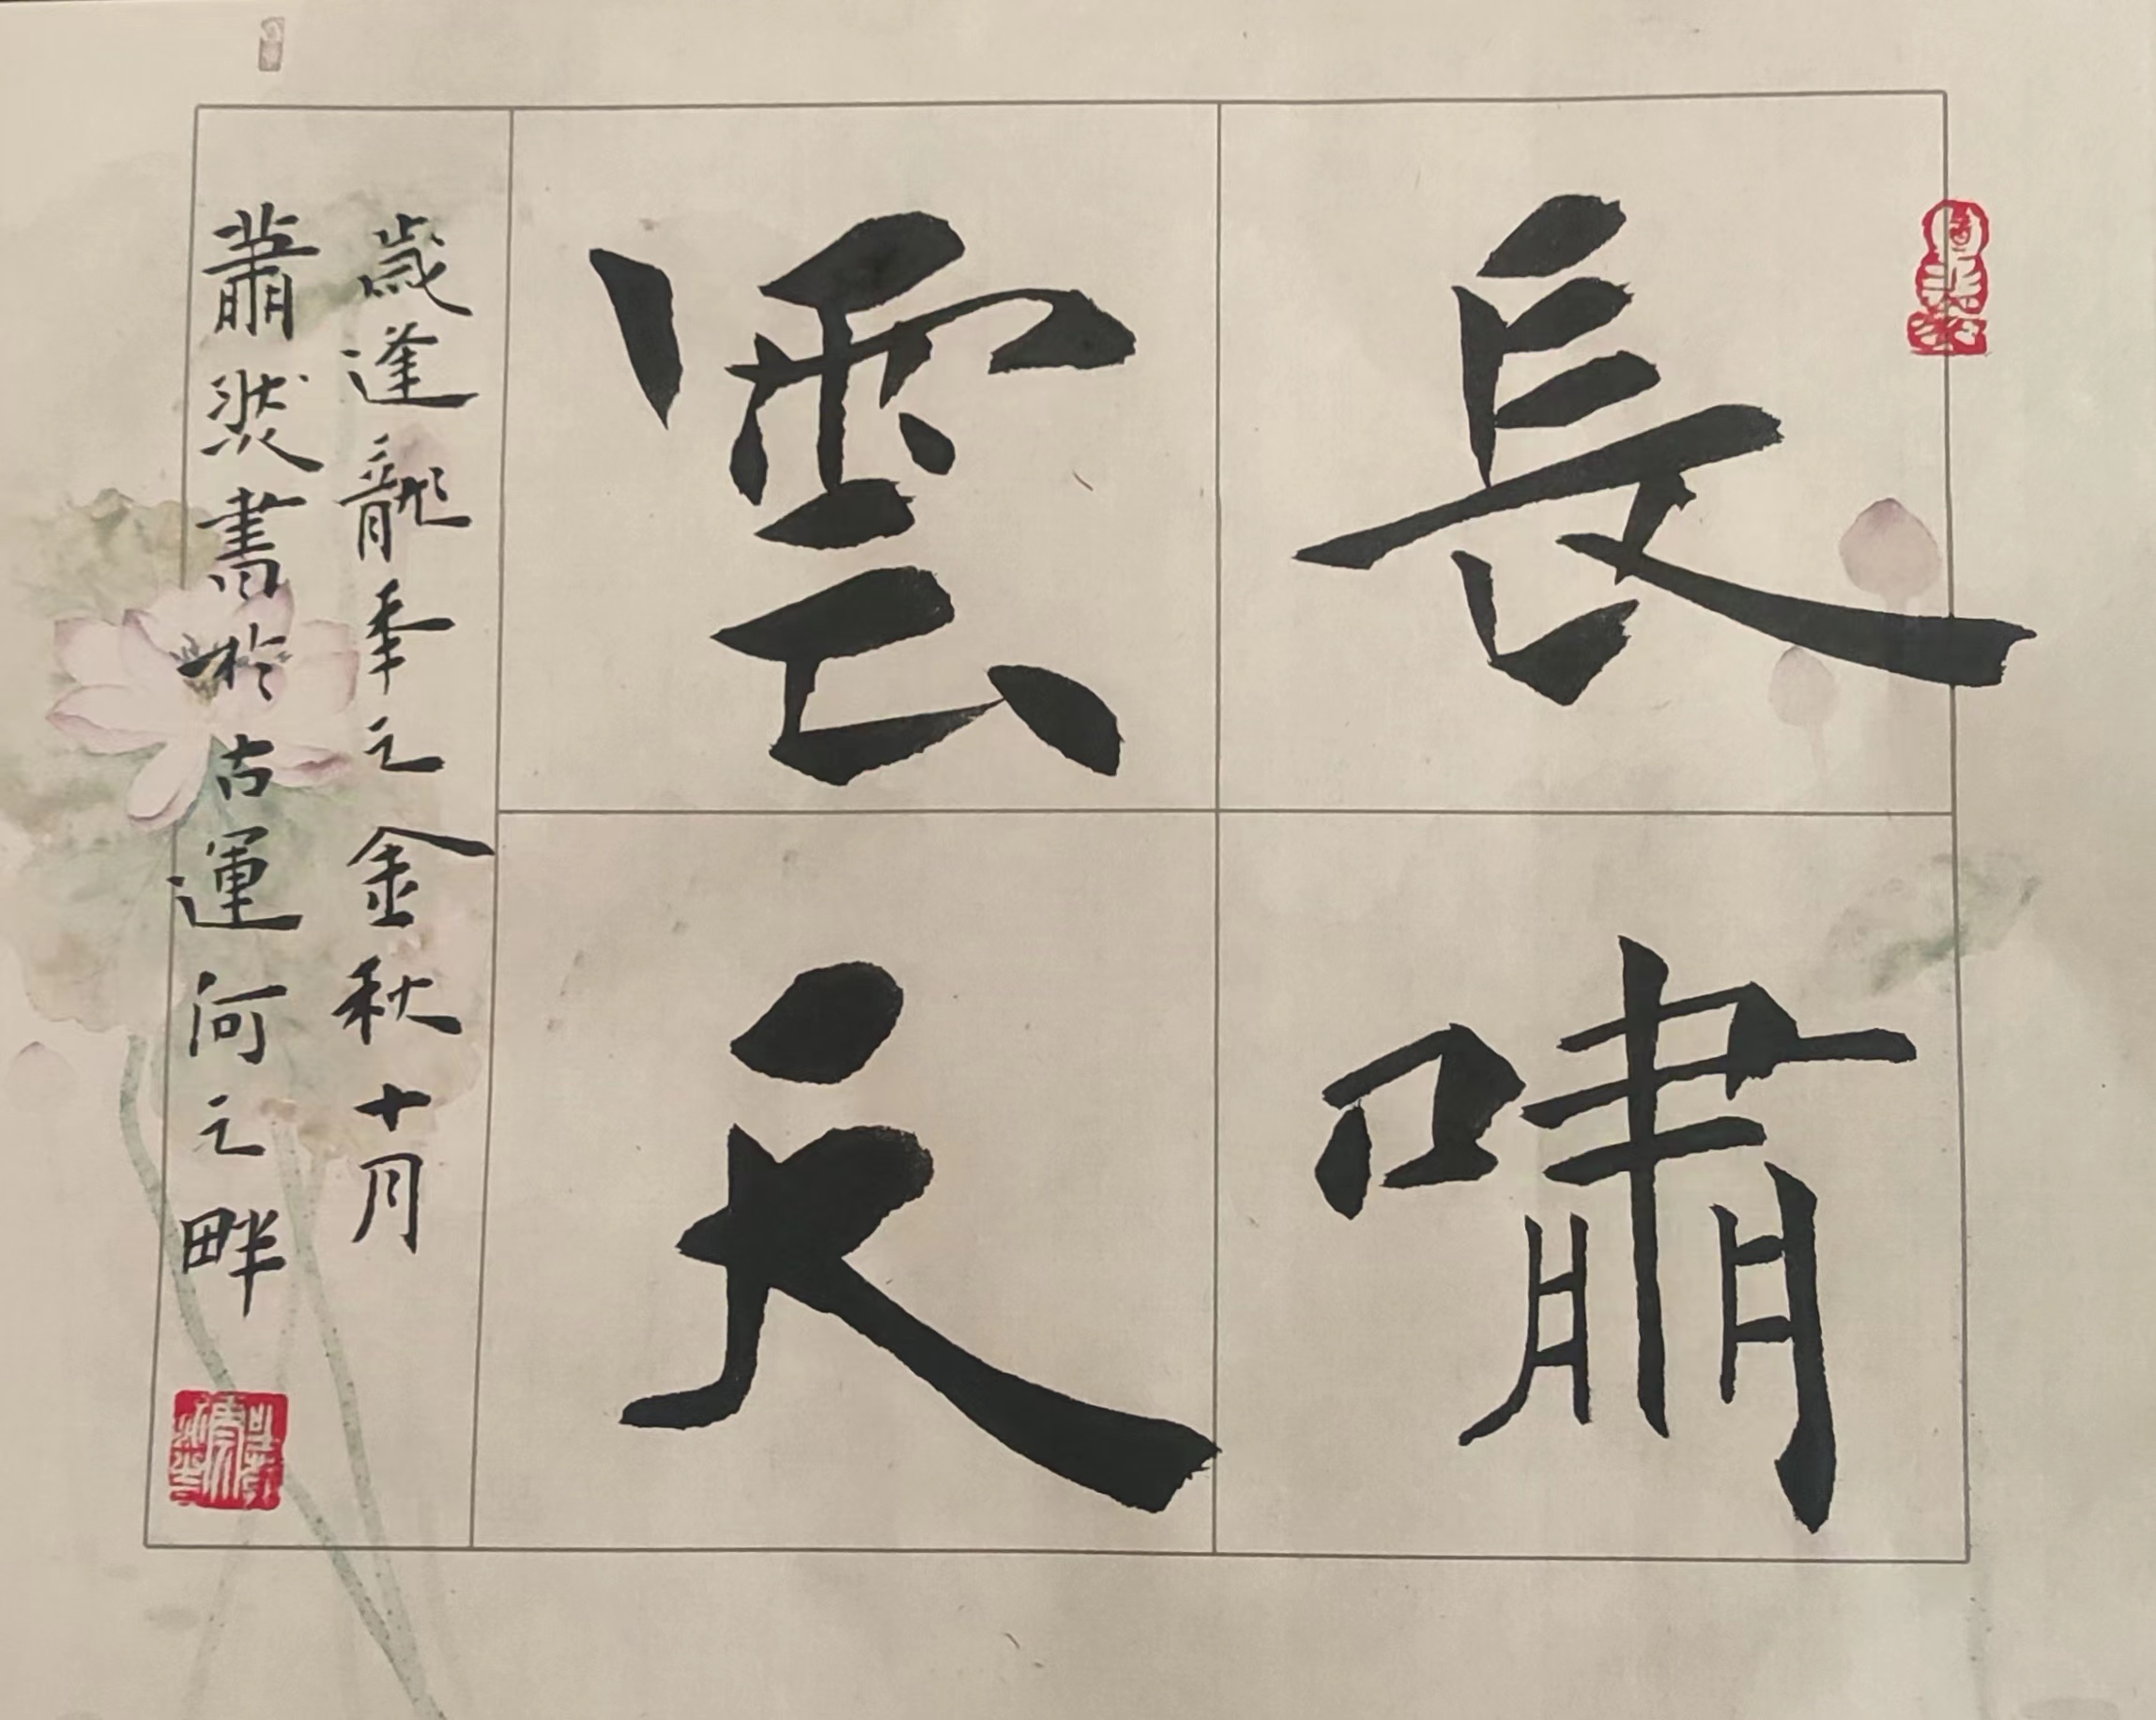 長嘯
雲天
歲逢龍年之金秋十月
蕭然書於古運河之畔